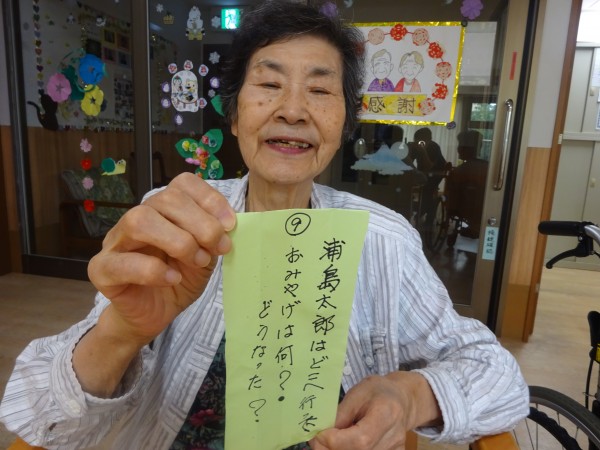 ⑨
浦島太郎はどこへ行き
おみやげは何？
どうなった？
感謝